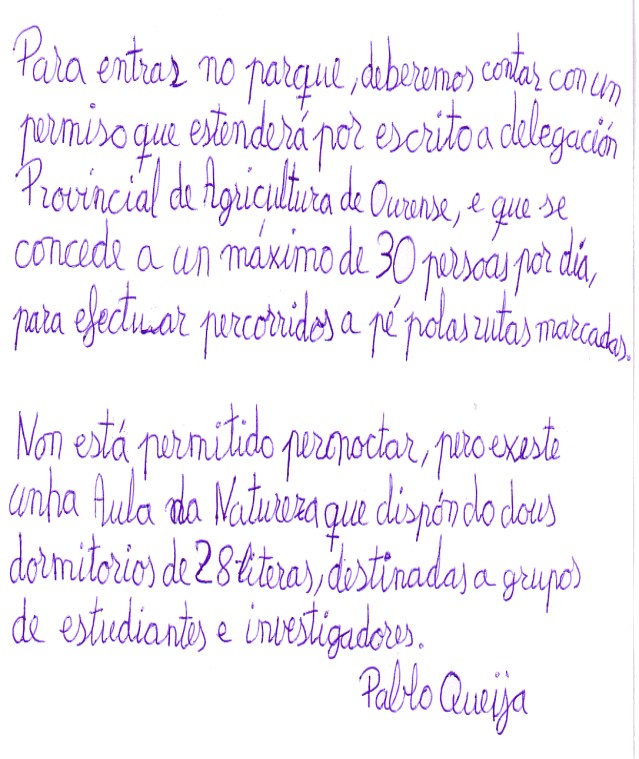 Para entrar no parque, deberemos contar con un
permiso que estenderá por escrito a delegación
Provincial de Agricultura de Ourense, e que se
concede a un máximo de 30 persoas por día,
para efectuar percorridos a pé polas rutas marcadas.
Non está permitido pernoctar, pero exeste
unha Aula da Natureza que dispón do dous
dormitorios de 28 literas, destinadas a grupos
de estudiantes e investigadores.
Pablo Queija